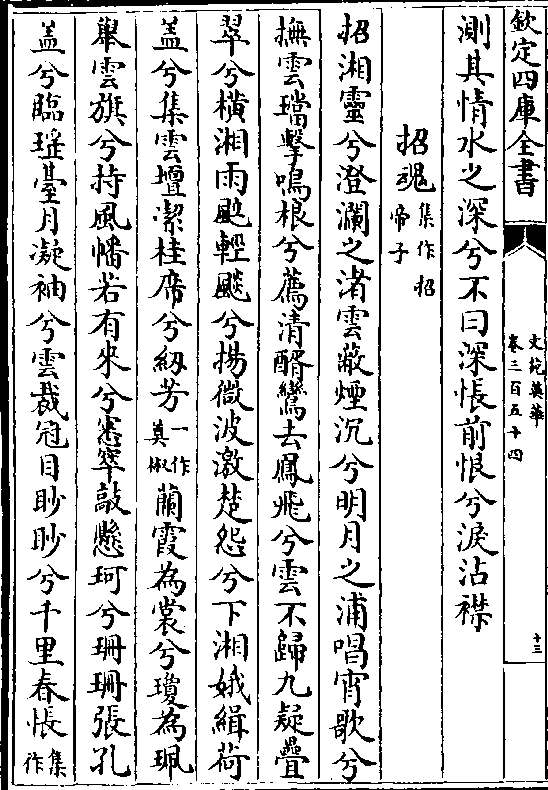 欽定四庫全書
文苑英華
卷三百五十四
十三
測其情水之深兮不曰深悵前恨兮淚沾襟
招魂集作招帝子
招湘靈兮澄瀾之渚雲蔽煙沉兮明月之浦唱宵歌兮
撫雲璫擊鳴根兮薦清醑鸞去鳳飛兮雲不歸九疑疊
翠兮橫湘雨颭輕颷兮揚微波激楚怨兮下湘娥緝荷
盖兮集雲壇潔桂席兮紉芳一作奠椒蘭霞為裳兮瓊為珮
舉雲旗兮持風幡若有來兮窸窣敲懸珂兮珊珊張孔
盖兮臨瑤臺月凝袖兮雲裁冠目眇眇兮千里春悵集作